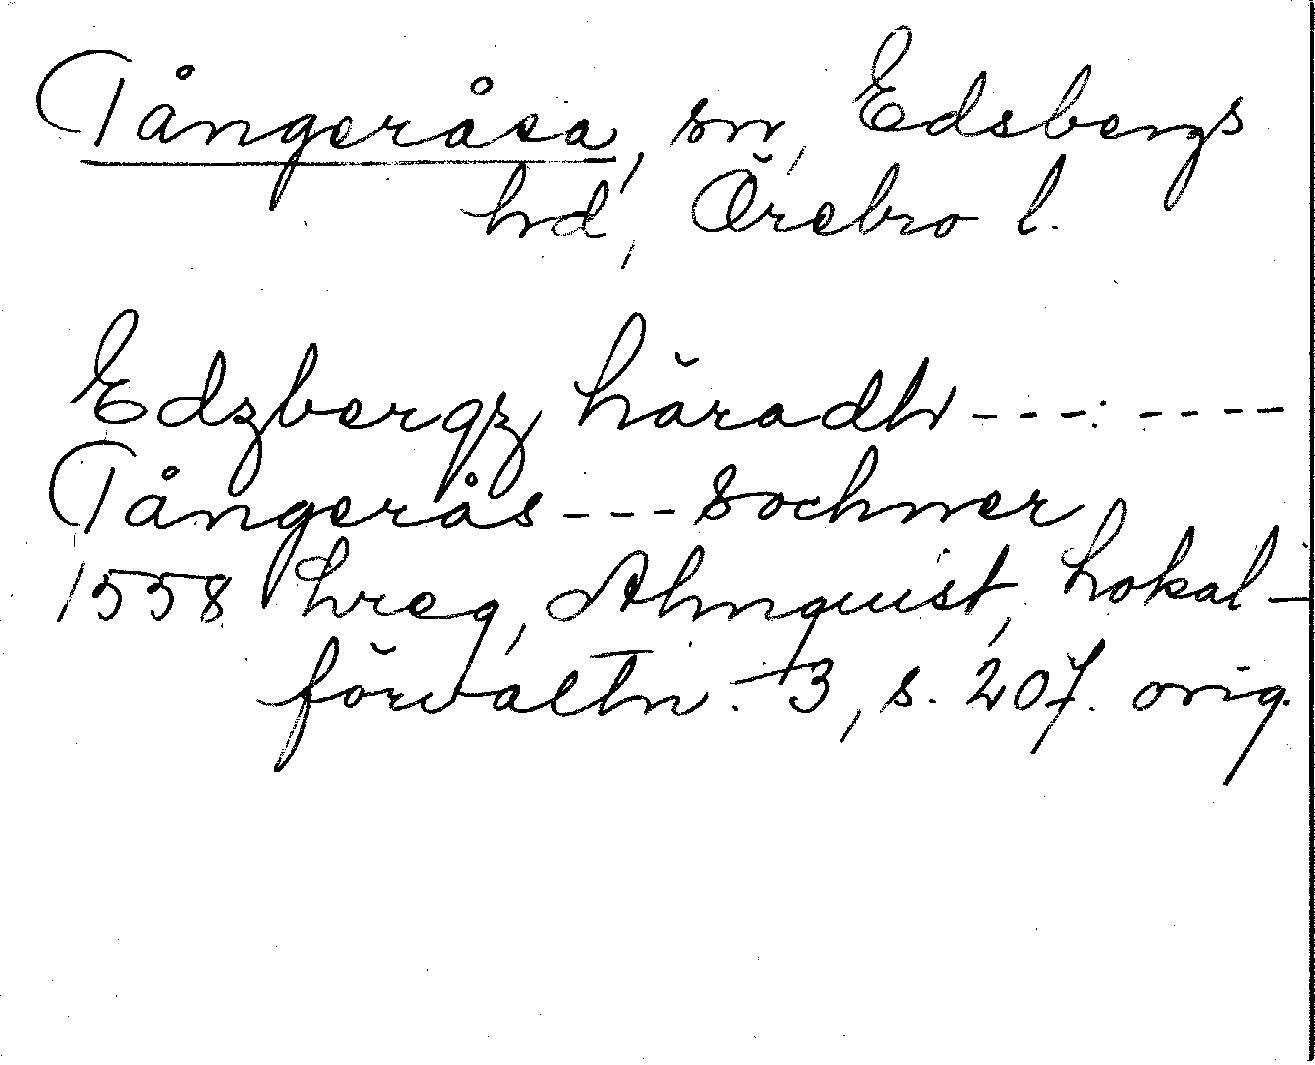 Tångeråsa, sn, Edsbergs
hd, Örebro l.
Edzbergz häradh ---:----
Tångerås --- sochner
1558 hreg, Almquist, Lokal-
förvaltn. 3, s. 207. orig.